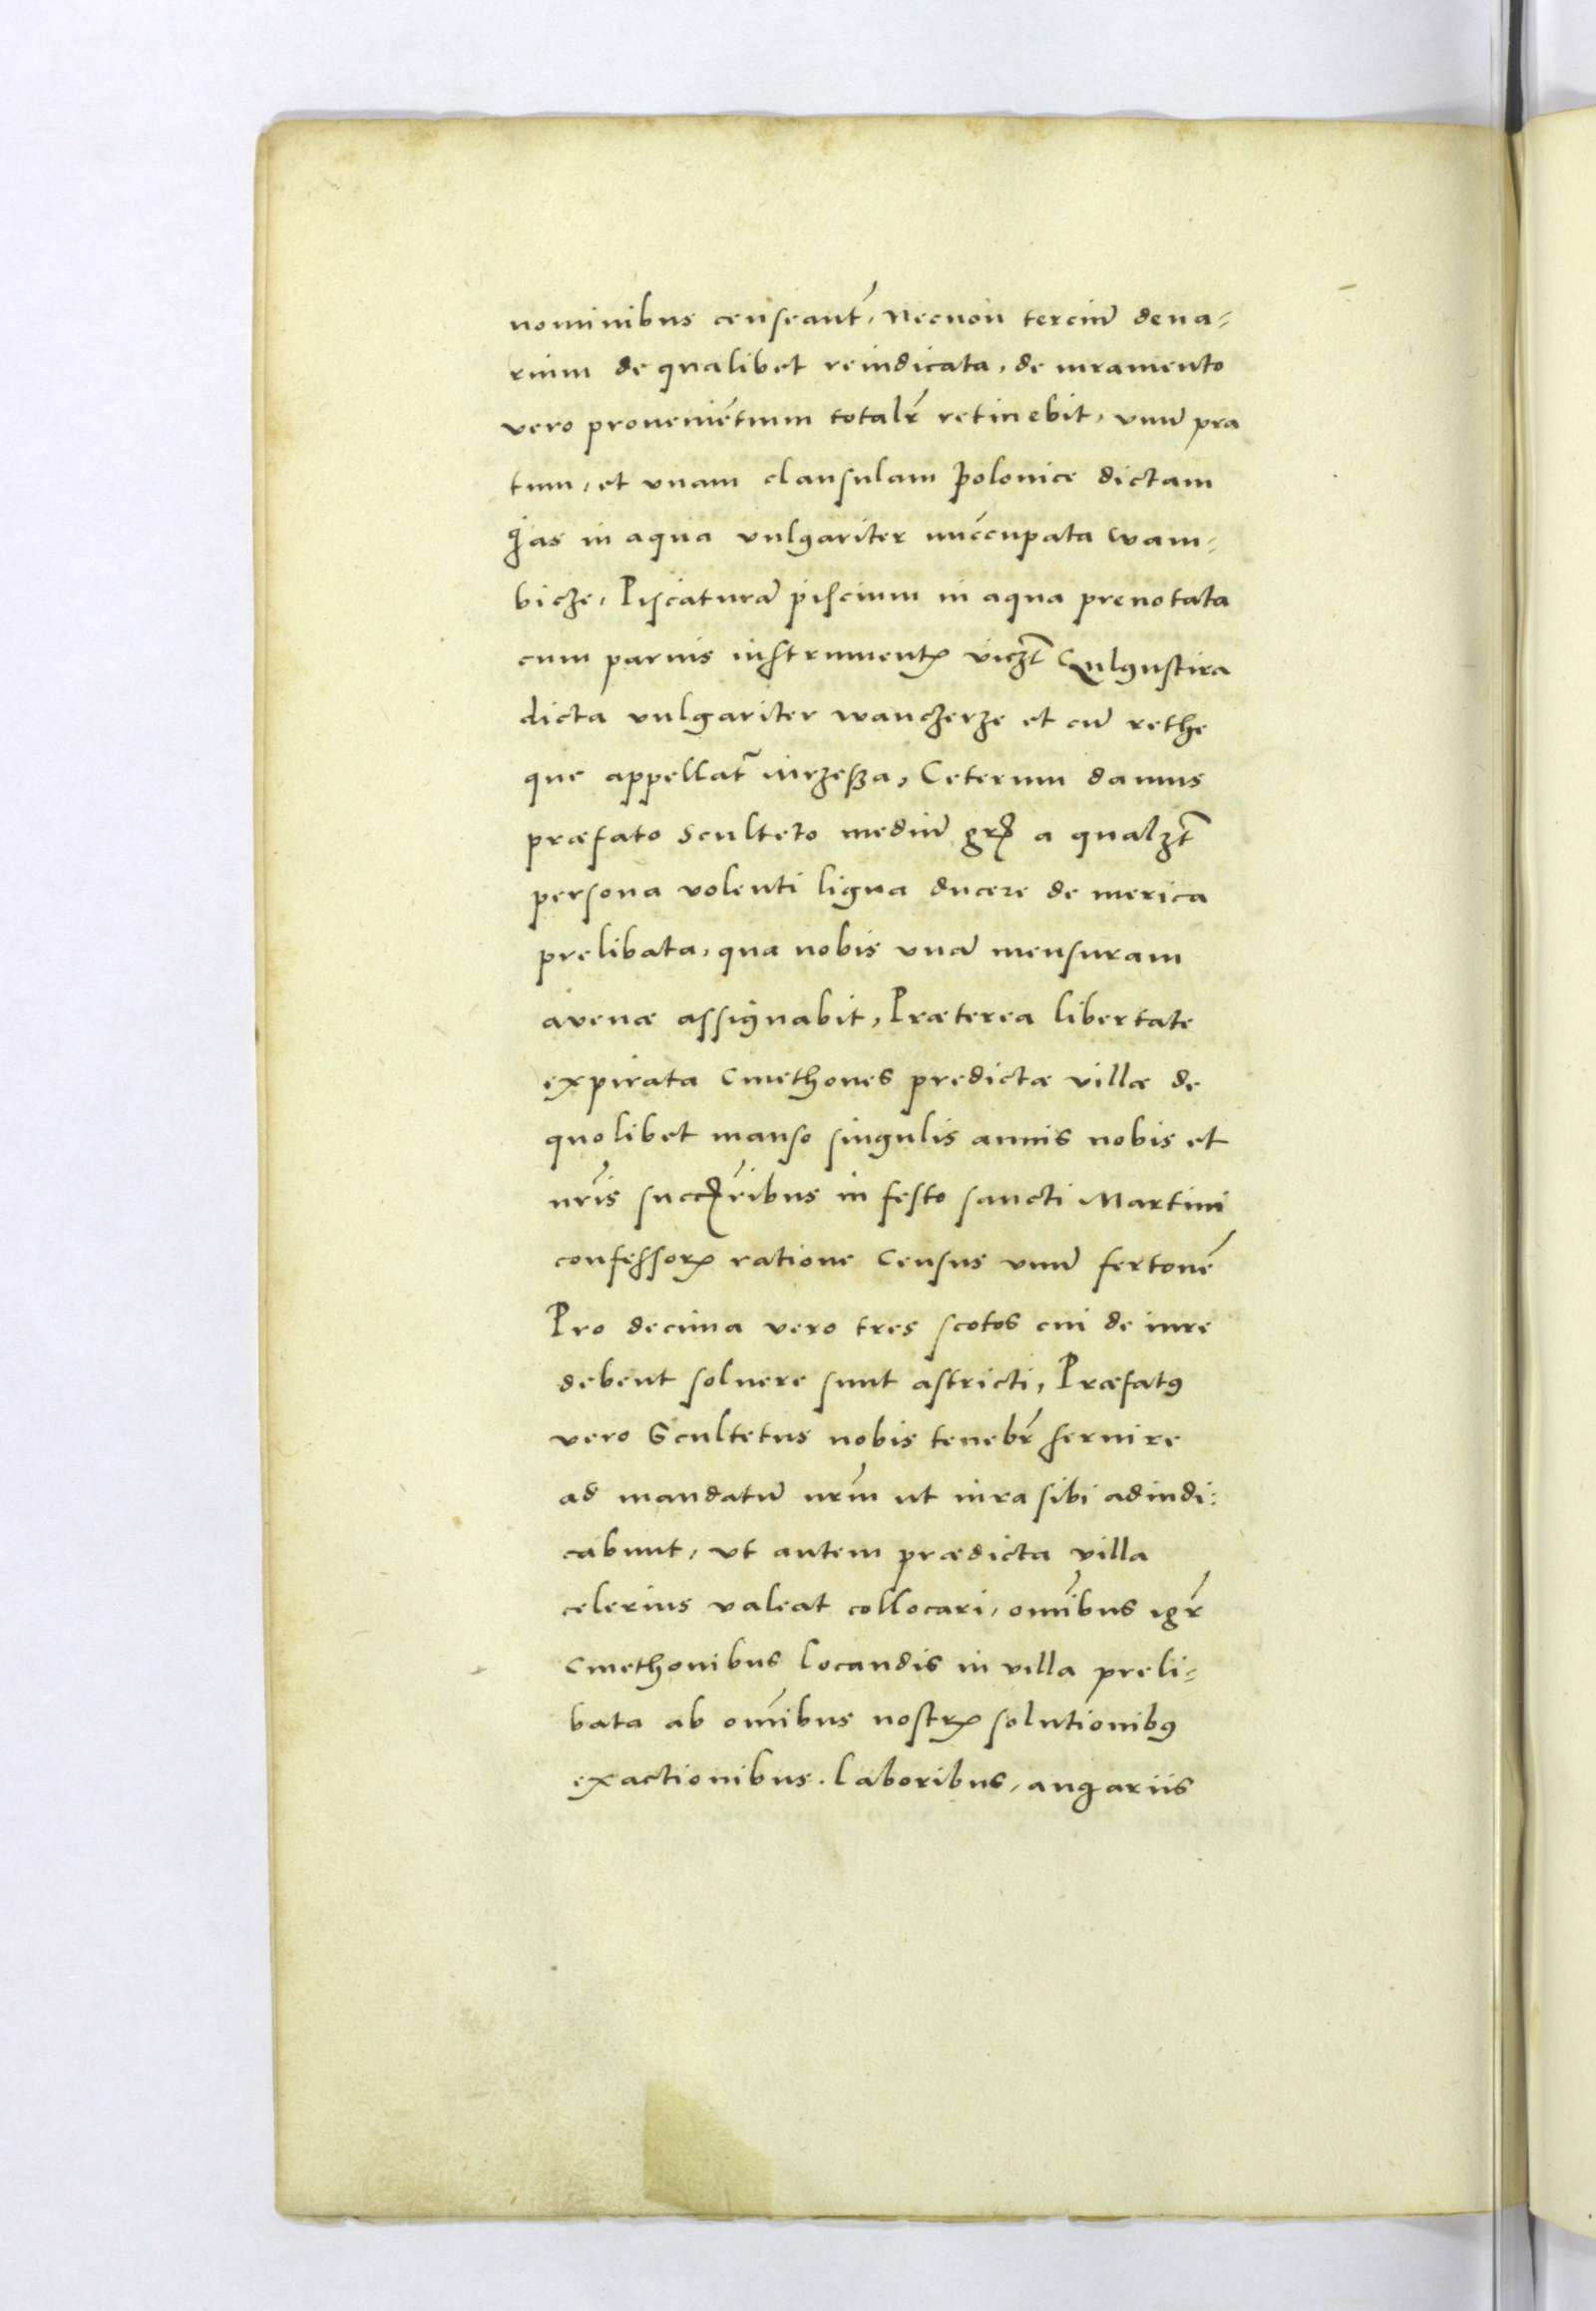 nominibus censeant᷑, Necnon terciu̅ dena-
rium de qualibet re iudicata, de iuramento
vero prouenie̅tium totalr̅ retinebit, vnu̅ pra
tum, et vnam clausulam Polonice dictam
Jas in aqua vulgariter nu̅ccupata Wam-
bicze, Piscatura̅ piscium in aqua prenotata
cum paruis instrumentꝭ viczt̅ Gulgustira
dicta vulgariter wanczerze et cu̅ rethe
que appellat᷑ mrzessza, Ceterum damus
præfato Sculteto mediu̅ gr̅ a qualzt̅
persona volenti ligna ducere de merica
prelibata, qua nobis vna̅ mensuram
avenæ assignabit, Præterea libertate
expirata Cmethones predictæ villæ de
quolibet manso singulis annis nobis et
nr̅is succr̅ibus in festo sancti Martini
confessorꝭ ratione Census vnu̅ fertone̅
Pro decima vero tres scotos cui de iure
debent soluere sunt astricti, Præfatꝰ
vero Scultetus nobis tenebr̅ seruire
ad mandatu̅ nr̅m ut iura sibi adiudi:
cabunt, vt autem prædicta villa
celerius valeat collocari, om̅ibus igr̅
Cmethonibus locandis in villa preli-
bata ab om̅ibus nostrꝭ solutionibꝰ
exactionibus. laboribus, angariis